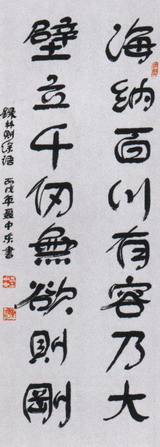 海納百川有容乃大
壁立千仞無欲則剛
錄林則徐語 丙戌年 中东書